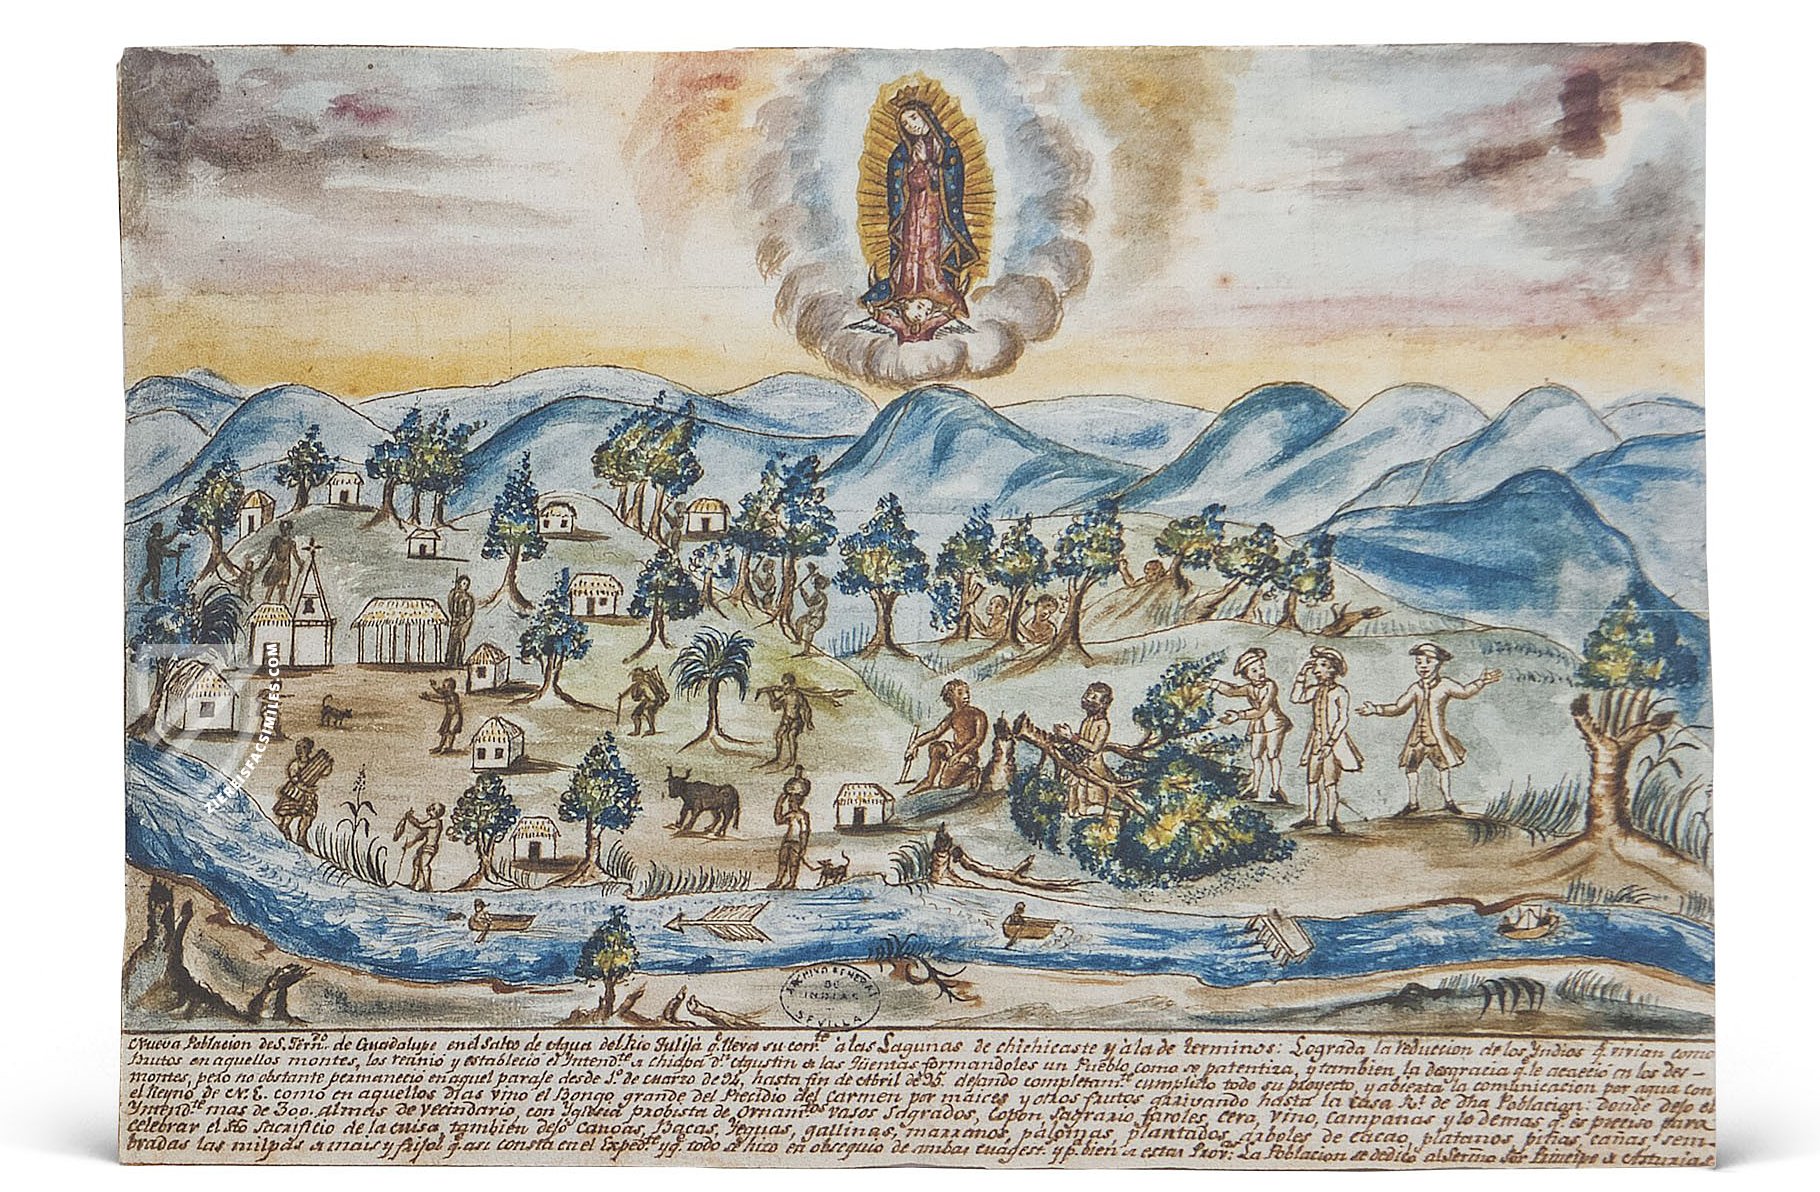 Nueva Poblacion de S. Fern.do de Guadalupe en el Salto de Agua del Rio Tulijá q.e lleva su corr.te á las Lagunas de chichicaste y á la de terminos: Lograda la reduccion de los Yndios q.e vivian como
brutos en aquellos montes, los reunió y estableció el Yntend.te de Chiapa D.n Agustin de las Quentas formandoles un Pueblo como se patentiza, y tambien la desgracia q.e le acaeció en los des-
montes, pero no obstante permaneció en aquel parage desde 1.o de Marzo de 94, hasta fin de Abril de 95. dejando completam.te cumplido todo su proyecto, y abierta la comunicacion por agua con
el Reyno de N. E. como en aquellos dias vino el Bongo grande del Precidio del Carmen por maices y otros frutos arrivando hasta la Casa R.l de dha Poblacion: donde dejo el
Yntend.te mas de 300. almas de vecindario, con Yglesia probista de ornam.tos vasos sagrados, Copon, Sagrario faroles, cera, vino, campanas y lo demas q.e es preciso para
celebrar el S.to Sacrificio de la Misa, tambien dejo Canoas, Bacas, Yeguas, gallinas, marranos, palomas, plantados arboles de cacao, platanos, piñas, cañas, y sem-
bradas las milpas de mais y frisol q.e asi consta en el Exped.te y q.e todo se hizo en obsequio de ambas Magest.s y p.r bien de estas Prov.as La Poblacion se dedicó al Sermo Sor Principe de Asturias
ARCHIVO GENERAL
DE
INDIAS
SEVILLA
ZIEREISFACSIMILES.COM